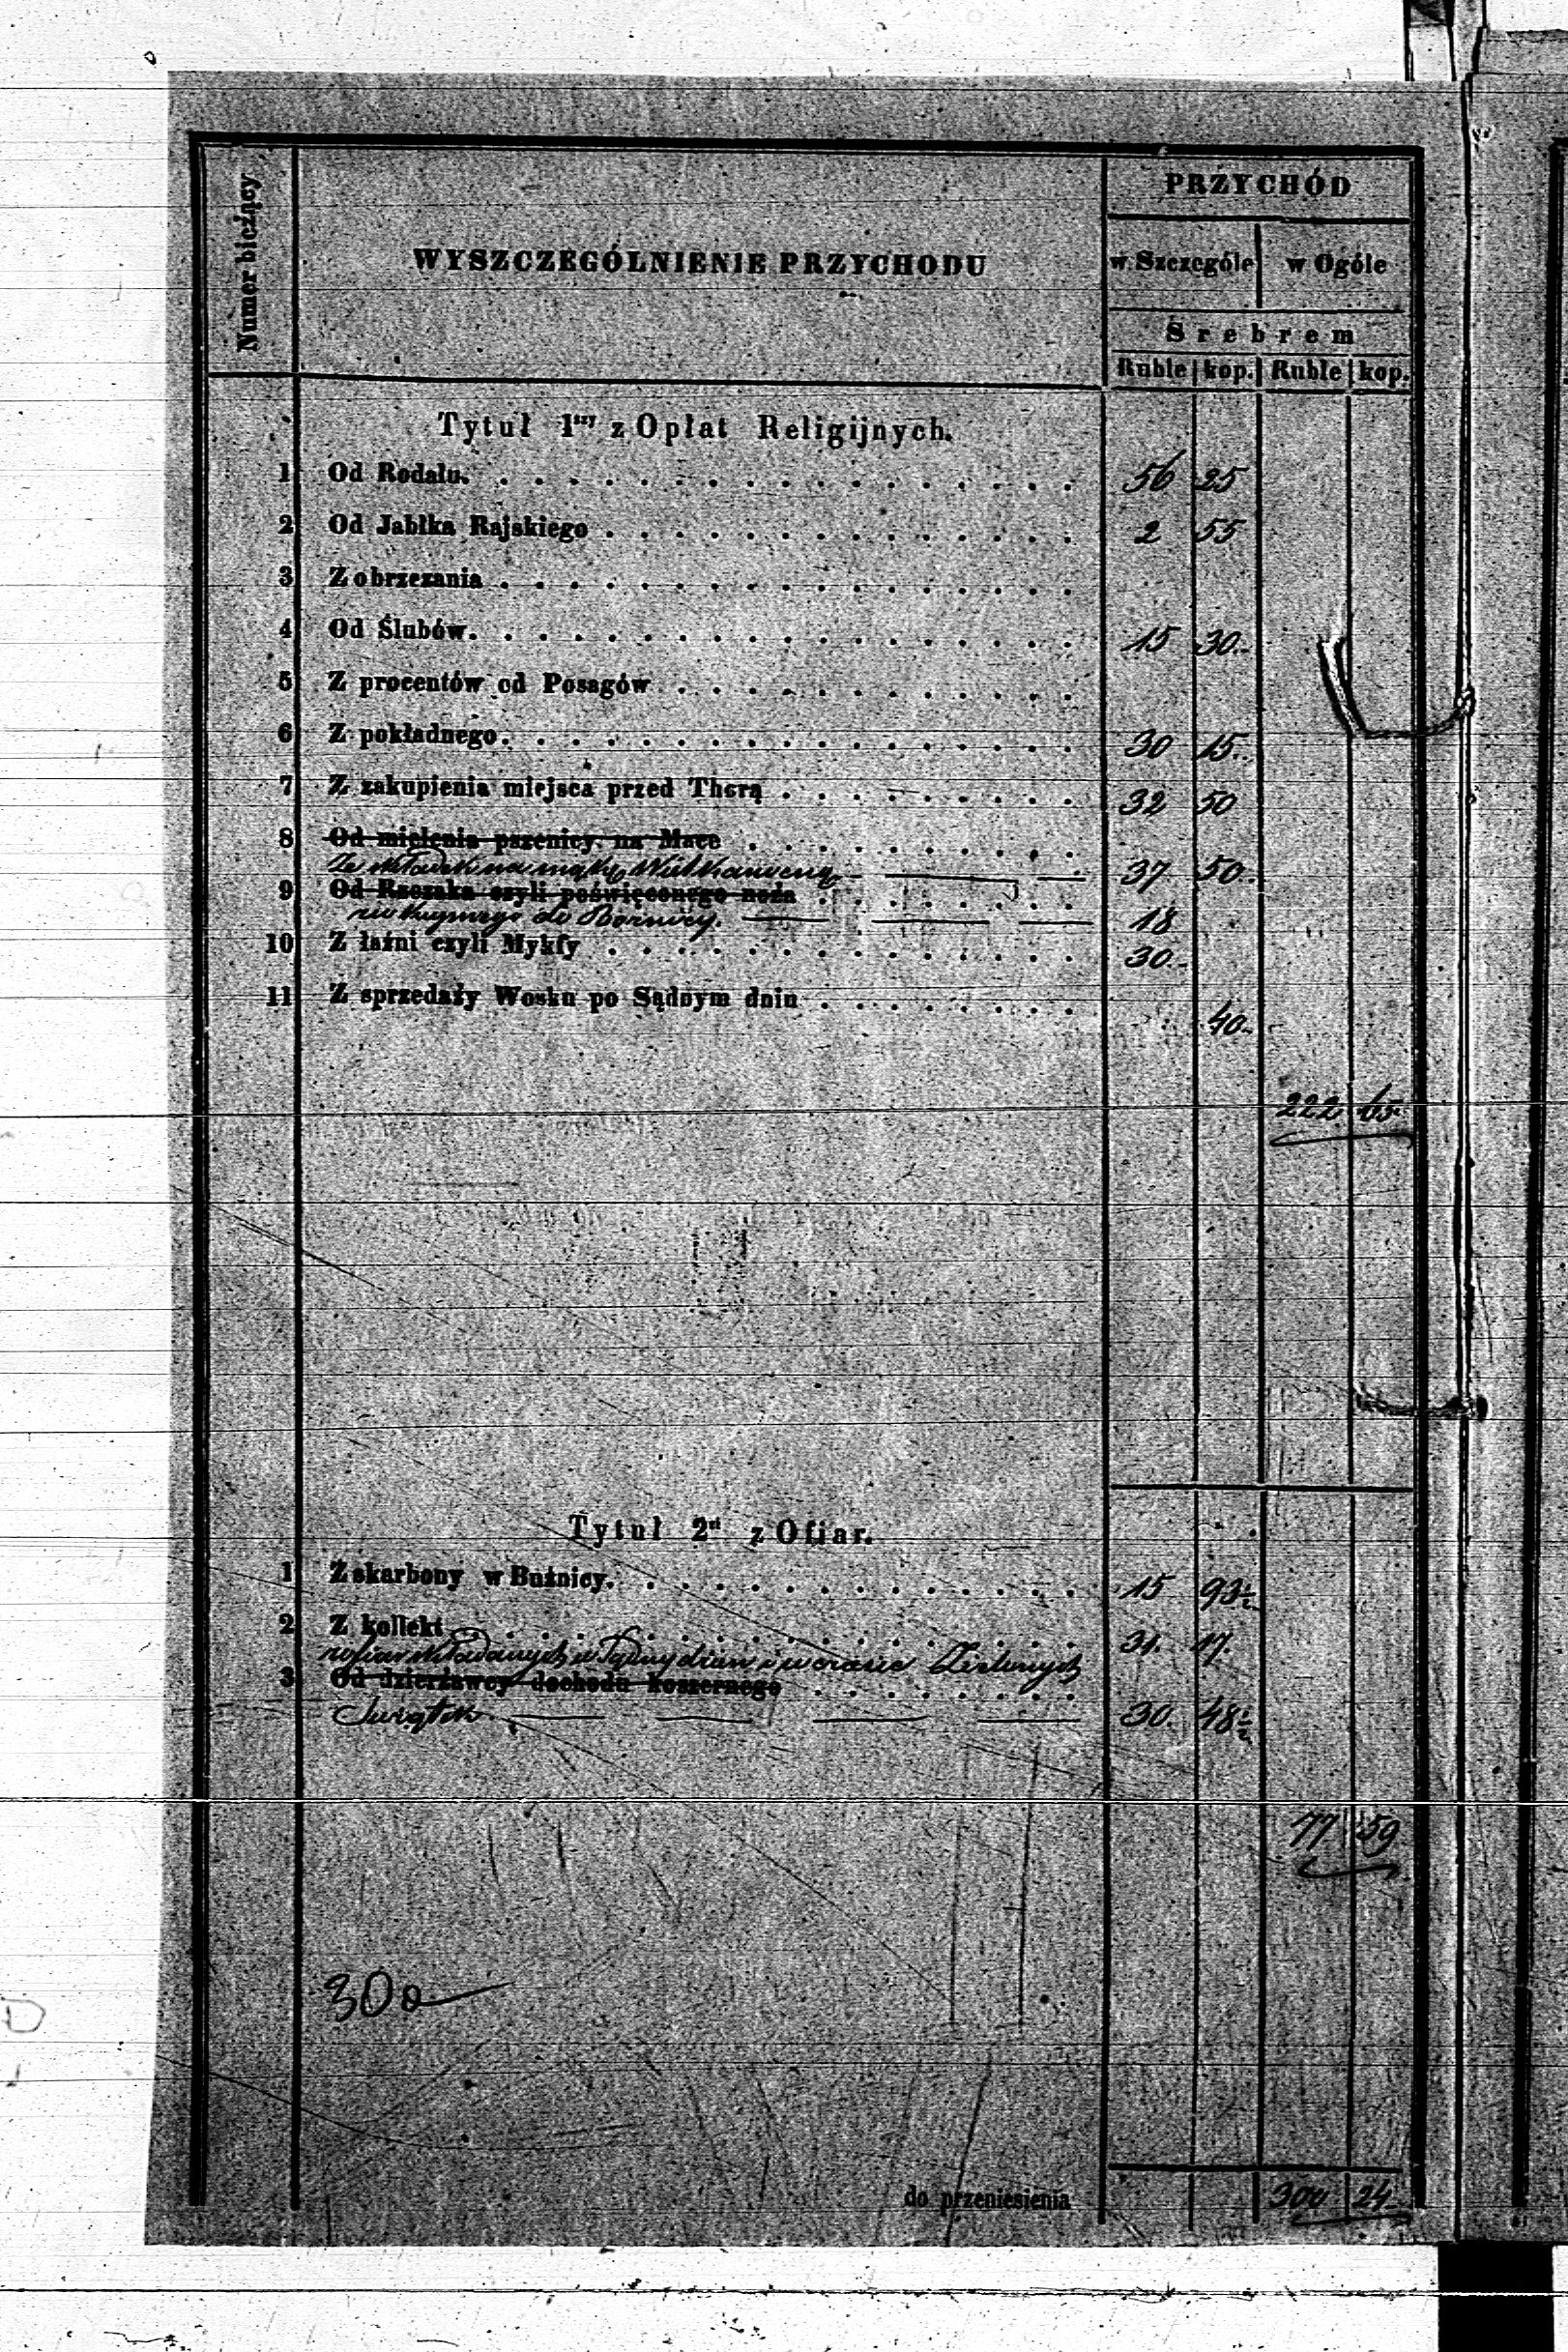 PRZYCHÓD
Numer bieżący
WYSZCZEGÓLNIENIE PRZYCHODU
w Szczególe w Ogóle
Srebrem
Ruble kop. Ruble kop.
Tytuł 1szy z Opłat Religijnych.
1 Od Rodału. 56 25
2 Od Jabłka Rajskiego 2 55
3 Z obrzezania
4 Od Ślubów. 15 30
5 Z procentów od Posagów
6 Z pokładnego. 30 15
7 Z zakupienia miejsca przed Thorą 32 50
8 Od mielenia pszenicy na Mace
Ze składek na mąkę Wielkanocną 37 50
9 Od Rzezaka czyli poświęconego noża
do Bożnicy. 18
10 Z łaźni czyli Mykfy 30
11 Z sprzedaży Wosku po Sądnym dniu 40
222 65
Tytuł 2gi z Ofiar.
1 Z skarbony w Bużnicy. 15 93½
2 Z kollekt 31 17
z ofiar składanych w Sądny dzień i w czasie Zielonych
3 Od dzierżawcy dochodu koszernego
Świątek 30 48½
77 59
300
do przeniesienia 300 24